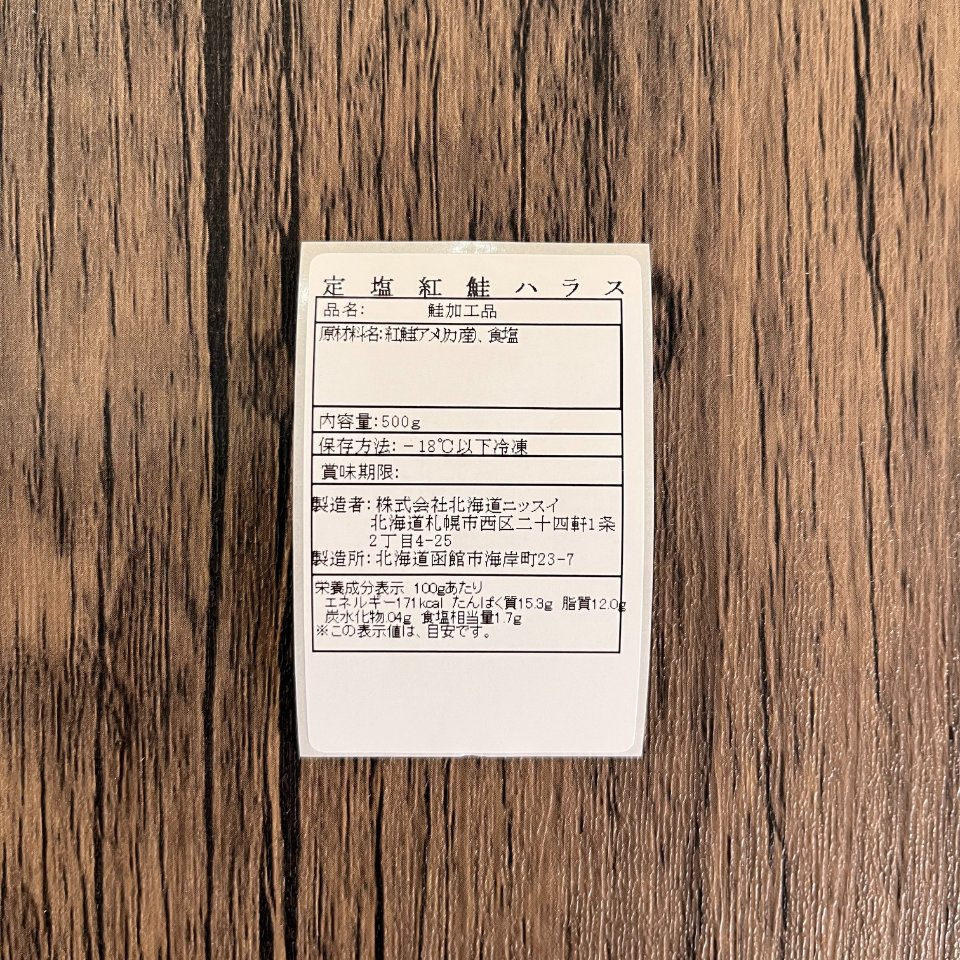 定塩紅鮭ハラス
品名: 鮭加工品
原材料名:紅鮭(アメリカ産)、食塩
内容量:500g
保存方法:－18℃以下冷凍
賞味期限:
製造者:株式会社北海道ニッスイ
北海道札幌市西区二十四軒1条
2丁目4-25
製造所:北海道函館市海岸町23-7
栄養成分表示 100gあたり
エネルギー171kcal たんぱく質15.3g 脂質12.0g
炭水化物.04g 食塩相当量1.7g
※この表示値は、目安です。